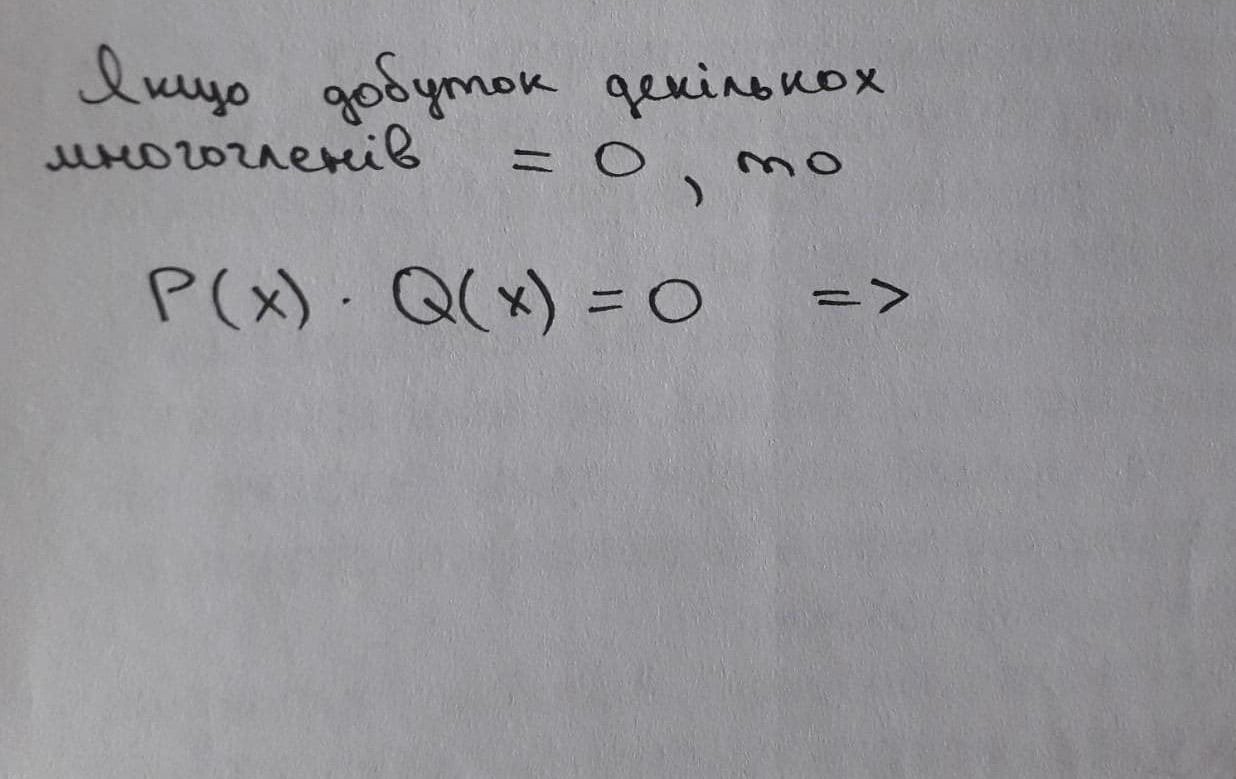 Якщо добуток декількох
многочленів = 0, то
P(x) · Q(x) = 0 =>